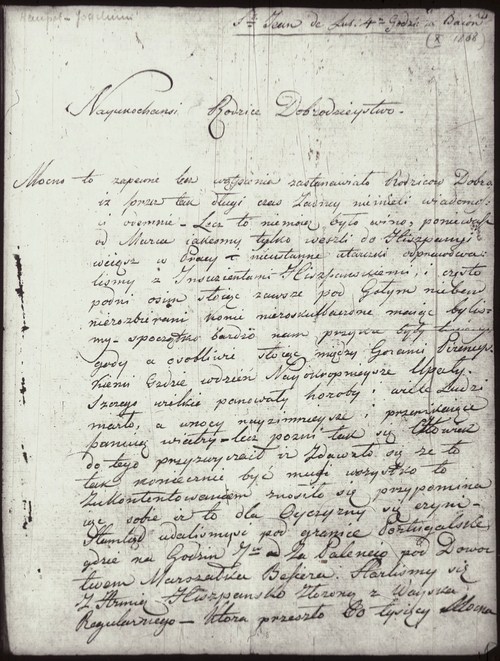 St. Jean de Luz 4 Godzi a Baion
(X 1808)
Nayukochansi Rodzice Dobrodzieystwo.
Mocno to zapewne bez wątpienia zastanawiało Rodziców Dobro
iż przez tak długi czas żadney niemieli wiadomości
odemnie - Lecz to niemoią było winą, poniewasz
od Marca iakesmy tylko weszli do Hiszpanyi
wciąsz w Pracy nieustanne utarczki odprawowa
lismy z Insurientami Hiszpanskiemi, i często
podni osm stoiąc zawsze pod Gołym niebem
nierozbierani konie nierozkulbaczone maiąc bylismy
my - spoczątko bardzo nam przykre były
gody a osobliwie stoiąc między Gorami Pireneys
kiemi Gdzie wdzień Nayokropnieysze Upały
Szczego wielkie panowały horoby i wiele Ludzi
marło, a wnocy nayzimnieysze i przenikaiące
panuią wiatry - lecz pozni tak się Człowiek
do tego przyzwyczaił iż Zdawało się że to
tak koniecznie być musi wszystko to
Zukontentowaniem znosiło się przypomina
iąc sobie iż to dla Oyczyzny się czyni -
Stamtąd udalismysi pod granice Portugalskie
gdzie na Godzin 7 a La Palenciego pod Dowoc
twem Marszałka Besiera. Starlismy się
Z Armią Hiszpansko Złożoną z Woyska
Regularnego - Ktora przeszło 60 tysięcy Mocna